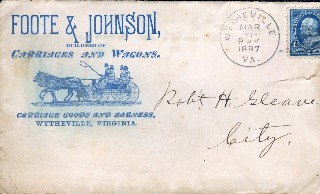 FOOTE & JOHNSON,
BUILDERS OF
CARRIAGES AND WAGONS.
CARRIAGE GOODS AND HARNESS,
WYTHEVILLE, VIRGINIA.
WYTHEVILLE
MAR
1897
VA.
Robt H. Gleave
City.